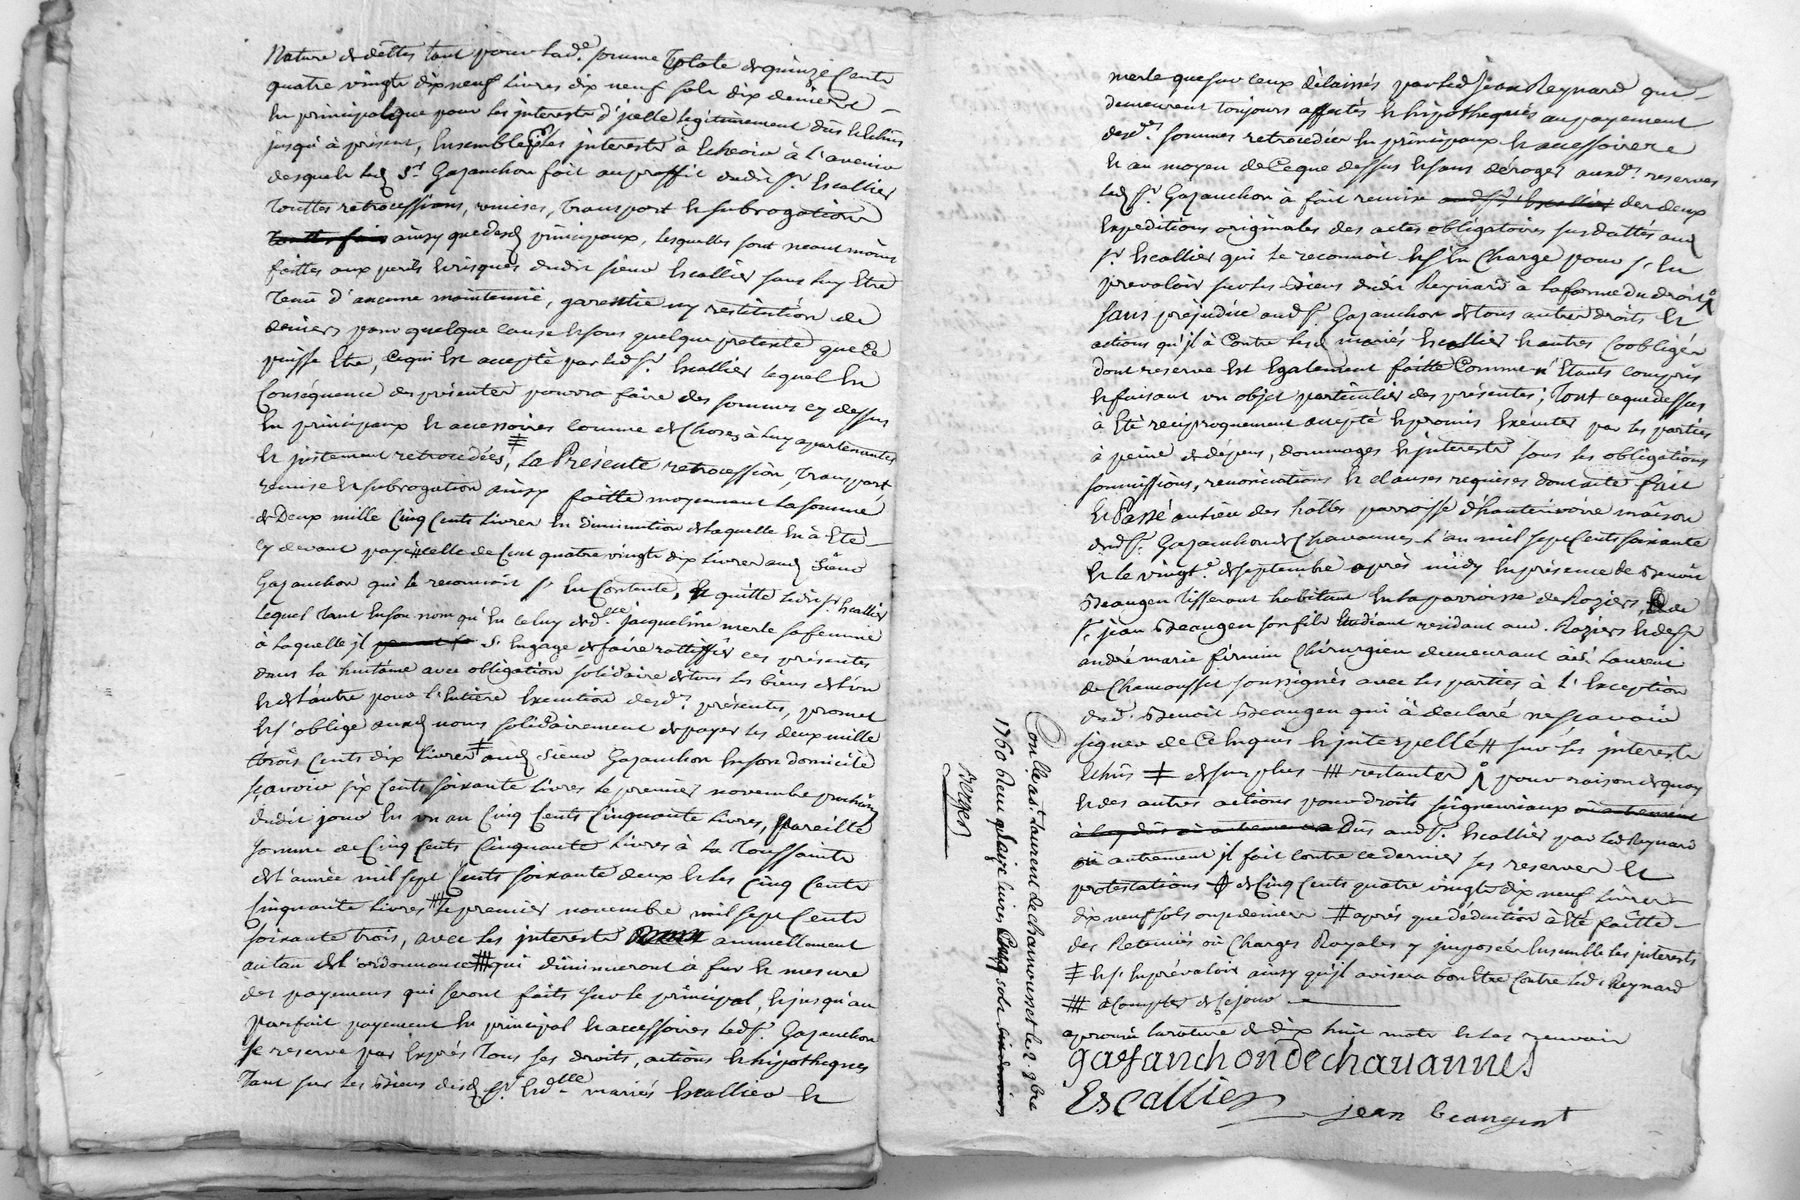 Nature de dêttes tant pour lad.e somme totale de quinze Cents
quatre vingts dix neuf Livres dix neuf sols dix deniers
En principal que pour les interests d'jcelle legitimement dûs & Echûs
jusqu'à présent, Ensemble les interests à Echeoir à l'avenir
desquels led. Sr. Gazanchon fait au proffit dudit Sr. Escallier
Touttes retrocessions, remises, transport & subrogations
ainsy que desd. principaux, lesquelles sont neantmoins
faittes aux perils & risques dudit sieur Escallier sans luy Etre
Tenû d'aucune maintenüe, garentie ny restitution de
deniers pour quelque cause & sous quelque pretexte que ce
puisse Etre, Ce qui Est accepté par led. Sr. Escallier lequel En
Conséquence des présentes pourra faire des sommes cy dessus
En principaux & accessoires comme de Choses à luy apartenantes
& justement retrocédées, La Présente retrocession, transport
remise & subrogation ainsy faitte moyennant la somme
de Deux mille Cinq Cents Livres En diminution de laquelle En à Eté
cy devant payé celle de Cent quatre vingts dix Livres aud. Sieur
Gazanchon qui le reconnoit s'en Contente, & quitte ledit Sr. Escallier
Lequel tant En son nom qu'En celuy de d.lle jacqueline merle sa femme
à laquelle jl s'Engage de faire rattiffier ces présentes
dans la huitaine avec obligation solidaire de tous les biens de l'un
& de l'autre pour l'Entiere Execution desd.s présentes, promet
& s'oblige auxd. noms solidairement de payer les deux mille
trois Cents dix Livres aud. Sieur Gazanchon En son domicile
sçavoir six Cents soixante Livres le premier novembre prochain
dudit jour En un an Cinq Cents Cinquante Livres, Pareille
somme de Cinq Cents Cinquante Livres à la Toussaints
de l'année mil sept Cents soixante deux & les Cinq Cents
Cinquante Livres le premier novembre mil sept Cents
soixante trois, avec les interests annuellement
au tau de l'ordonnance qui diminueront à fur & mesure
des payemens qui seront faits sur le principal, & jusqu'au
parfait payement En principal & accessoires led. Sr. Gazanchon
se reserve par Exprés tous ses droits, actions & hipotheques
Tant sur les Biens desd. Sr. & d.lle mariés Escallier &
merle que sur ceux délaissés par led. Jean Reynard qui
demeurent toujours affectés & hipothequés au payement
desd.es sommes retrocédées En principaux & accessoires
& au moyen de Ce que dessus & sans déroger auxd.s reserves
led. Sr. Gazanchon à fait remise aud. Sr. Escallier des deux
Expeditions originales des actes obligatoires susdattés aud.
Sr. Escallier qui le reconnoit & s'En Charge pour s'En
prevaloir sur les Biens dudit Reynard à la forme du droit
sans prejudice aud. Sr. Gazanchon de tous autres droits &
actions qu'jl à Contre lesd. mariés Escallier & autres Coobligés
dont reserve Est Egalement faitte Comme n'Etants compris
& faisant un objet particulier des présentes; Tout ce que dessus
à Eté reciproquement accepté & promis Exécuter par les parties
à peine de dépens, dommages & interests sous les obligations
soumissions, renonciations & clauses requises dont acte fait
& Passé au lieu des halles parroisse d'hauterivoire maison
dud. Sr. Gazanchon de Chavannes L'an mil sept Cents soixante
& le vingt de septembre après midy En présence de Benoit
Beaugen Tisserant habitant En la parroisse de Roziers, & de
Sr. jean Beaugen son fils Etudiant residant aud. Roziers & de Sr.
andré marie firmin Chirurgien demeurant à St. Laurent
de Chamousset soussignés avec les parties à l'Exception
dud. Benoit Beaugen qui à declaré ne sçavoir
signer de Ce Enquis & interpellé # sur les interests
Echûs ≠ de surplus # restantes pour raison de quoy
& des autres actions pour droits seigneuriaux
Dûs aud. Sr. Escallier par led. Reynard
autrement jl fait contre ce dernier ses reserves &
protestations de Cinq Cents quatre vingts dix neuf Livres
dix neuf sols onze deniers # après que déduction à Eté faitte
des Retenües où Charges Royales y imposées Ensemble les interests
≠ & s'En prévaloir ainsy qu'jl avisera bon Etre Contre led. Reynard
# à Compter de Ce jour
aprouvé la rature de dix huit mots & les renvois
gazanchon De chauannes
Escallier jean beaugent
Con.llé à st. laurent de chamousset le 2 8bre
1760 Reçu quinze livres Cinq sols
Berger